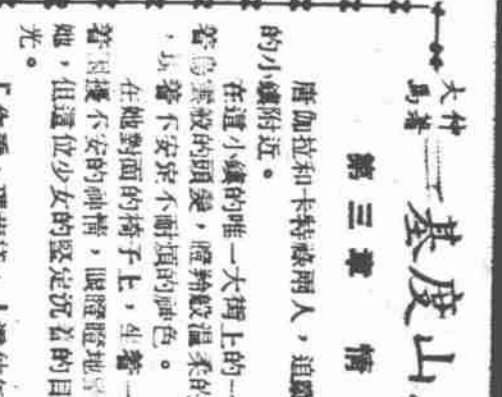 大仲馬著 基度山
第三章 情
唐伽拉和卡特祿兩人，追
的小鎮附近。
在這小鎮的唯一大街上的一
着烏雲般的頭髮，羚般溫柔的
，着不安定不耐煩的神色。
在她對面的椅子上，坐着一
着困擾不安的神情，眼瞪瞪地
她，但這位少女的堅定沉着的目
光。